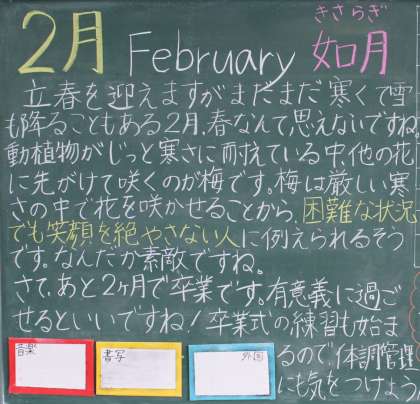 きさらぎ
2月 February 如月
立春を迎えますがまだまだ寒くて雪
も降ることもある2月、春なんて思えないですね
動植物がじっと寒さに耐えている中、他の花
に先がけて咲くのが梅です。梅は厳しい寒
さの中で花を咲かせることから、困難な状況
でも笑顔を絶やさない人に例えられるそう
です。なんだか素敵ですね。
さて、あと2ヶ月で卒業です。有意義に過ご
せるといいですね!卒業式の練習も始ま
るので、体調管理
にも気をつけよう
音楽
書写
外国